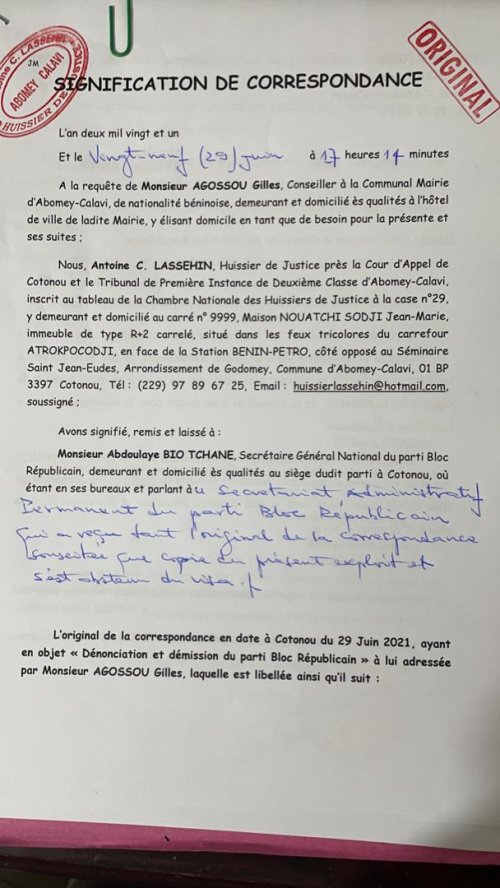 ine C. LASSEHIN
JM
ABOMEY CALAVI
HUISSIER DE
ORIGINAL
SIGNIFICATION DE CORRESPONDANCE
L'an deux mil vingt et un
Et le Vingt-neuf (29) juin à 17 heures 14 minutes
A la requête de Monsieur AGOSSOU Gilles, Conseiller à la Communal Mairie
d'Abomey-Calavi, de nationalité béninoise, demeurant et domicilié ès qualités à l'hôtel
de ville de ladite Mairie, y élisant domicile en tant que de besoin pour la présente et
ses suites ;
Nous, Antoine C. LASSEHIN, Huissier de Justice près la Cour d'Appel de
Cotonou et le Tribunal de Première Instance de Deuxième Classe d'Abomey-Calavi,
inscrit au tableau de la Chambre Nationale des Huissiers de Justice à la case n°29,
y demeurant et domicilié au carré n° 9999, Maison NOUATCHI SODJI Jean-Marie,
immeuble de type R+2 carrelé, situé dans les feux tricolores du carrefour
ATROKPOCODJI, en face de la Station BENIN-PETRO, côté opposé au Séminaire
Saint Jean-Eudes, Arrondissement de Godomey, Commune d'Abomey-Calavi, 01 BP
3397 Cotonou, Tél : (229) 97 89 67 25, Email : huissierlassehin@hotmail.com,
soussigné ;
Avons signifié, remis et laissé à :
Monsieur Abdoulaye BIO TCHANE, Secrétaire Général National du parti Bloc
Républicain, demeurant et domicilié ès qualités au siège dudit parti à Cotonou, où
étant en ses bureaux et parlant au Secrétariat Administratif
Permanent du parti Bloc Républicain
qui a reçu tant l'original de la correspondance
que copie du présent exploit et
s'est abstenu du visa ./
L'original de la correspondance en date à Cotonou du 29 Juin 2021, ayant
en objet « Dénonciation et démission du parti Bloc Républicain » à lui adressée
par Monsieur AGOSSOU Gilles, laquelle est libellée ainsi qu'il suit :